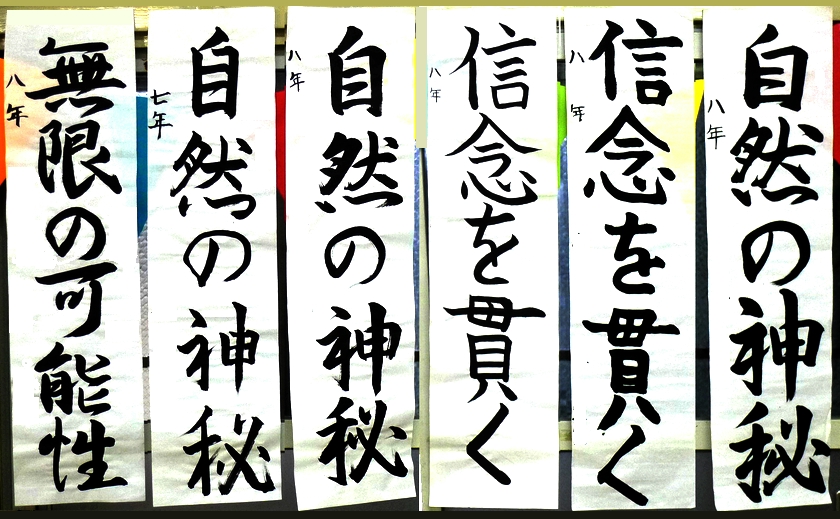 自然の神秘
八年
信念を貫く
八年
信念を貫く
八年
自然の神秘
八年
自然の神秘
七年
無限の可能性
八年